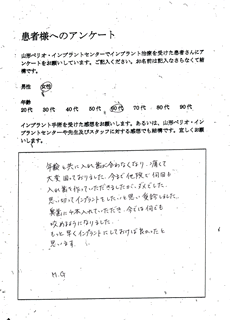 患者様へのアンケート
山形ペリオ・インプラントセンターでインプラント治療を受けた患者さんにア
ンケートをお願いしています。ご記入ください。お名前は記入なさらなくて結
構です。
男性 女性
年齢
20代 30代 40代 50代 60代 70代 80代 90代
インプラント手術を受けた感想をお願いします。あるいは、山形ペリオ・イン
プラントセンターや先生及びスタッフに対する感想でも結構です。宜しくお願
いします。
年齢と共に入れ歯が合わなくなり、痛くて
大変困っておりました。今まで他院で何回も
入れ歯を作っていただきましたが、ダメでした。
思い切ってインプラントをしたいと思い受診しました。
奥歯に4本入れていただき、今では何でも
咬めるようになりました。
もっと早くインプラントにしておけば良かったと
思います。
M.G